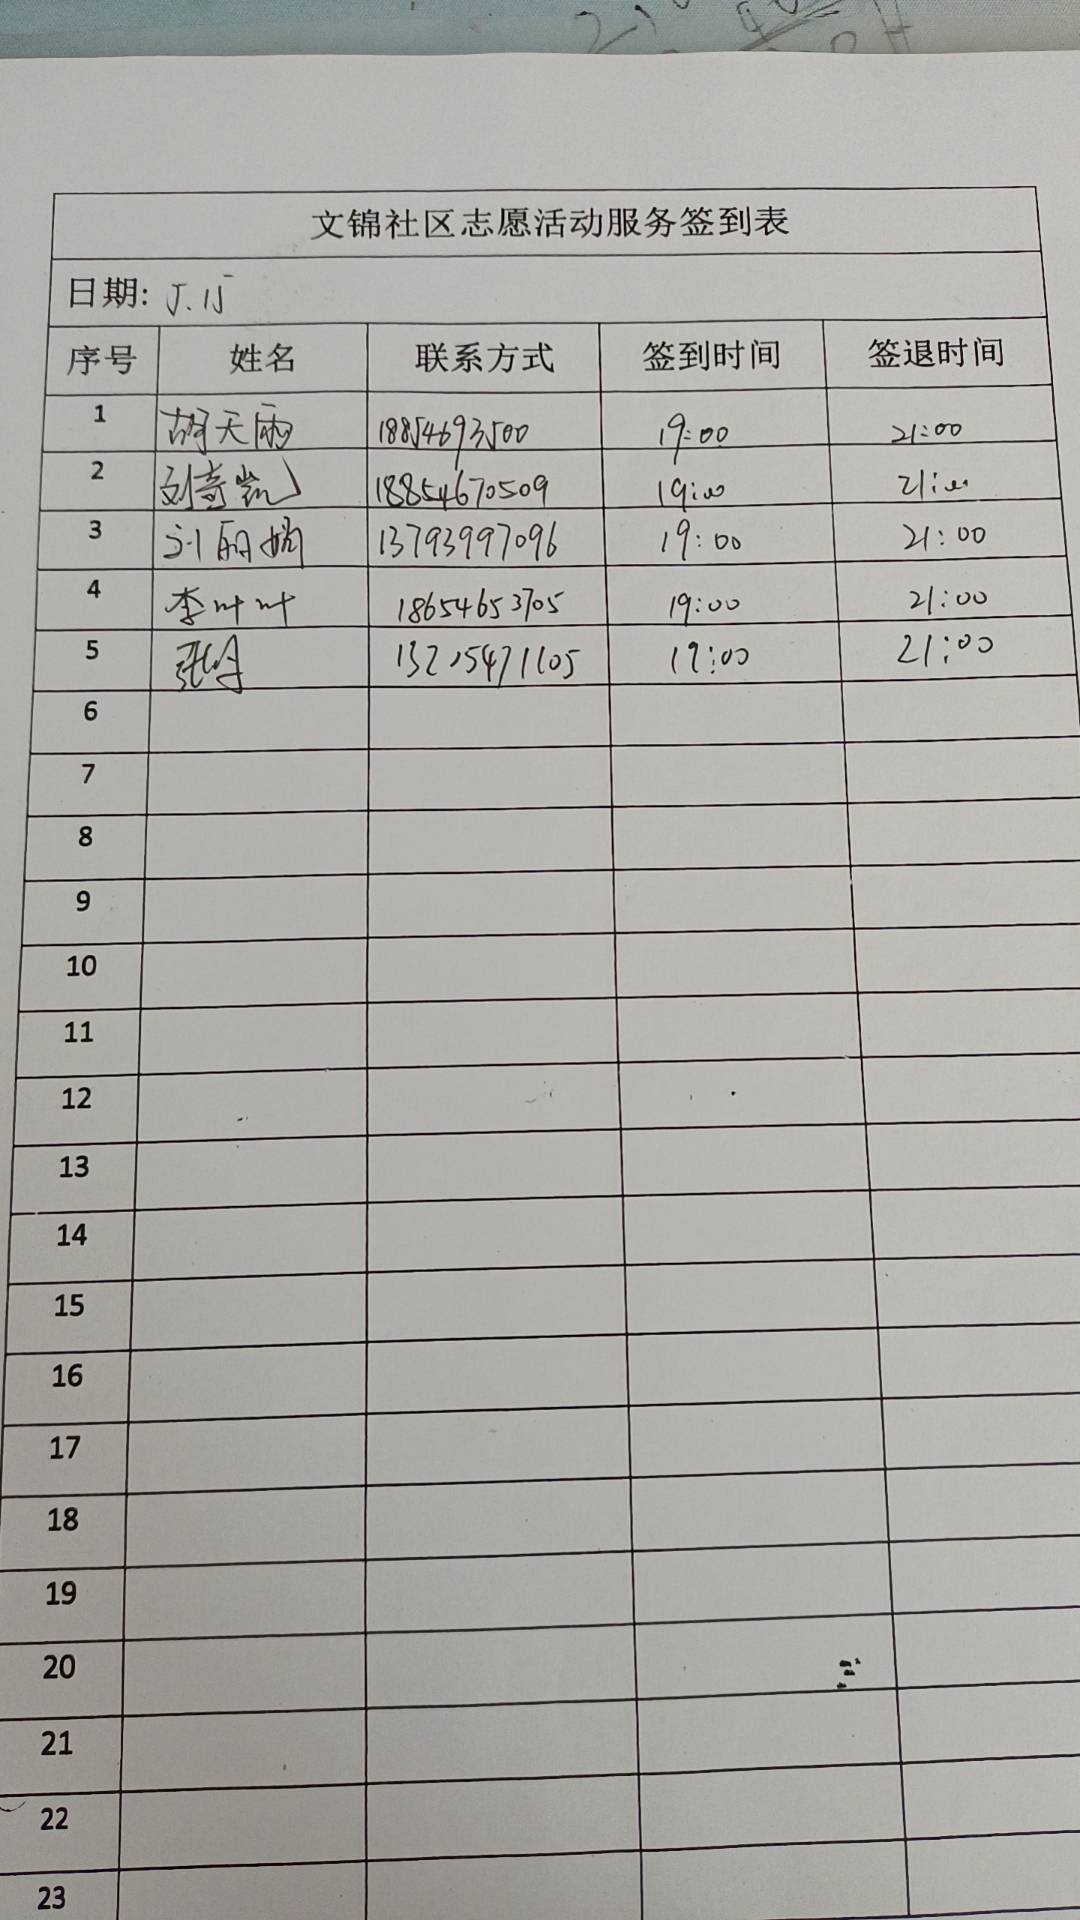 文锦社区志愿活动服务签到表
日期: 5.15
序号 姓名 联系方式 签到时间 签退时间
1 胡天雨 18854693500 19:00 21:00
2 刘奇凯 18854670509 19:00 21:00
3 刘丽娟 13793997096 19:00 21:00
4 李叶叶 18654653705 19:00 21:00
5 张丹 19:00 21:00
6
7
8
9
10
11
12
13
14
15
16
17
18
19
20
21
22
23